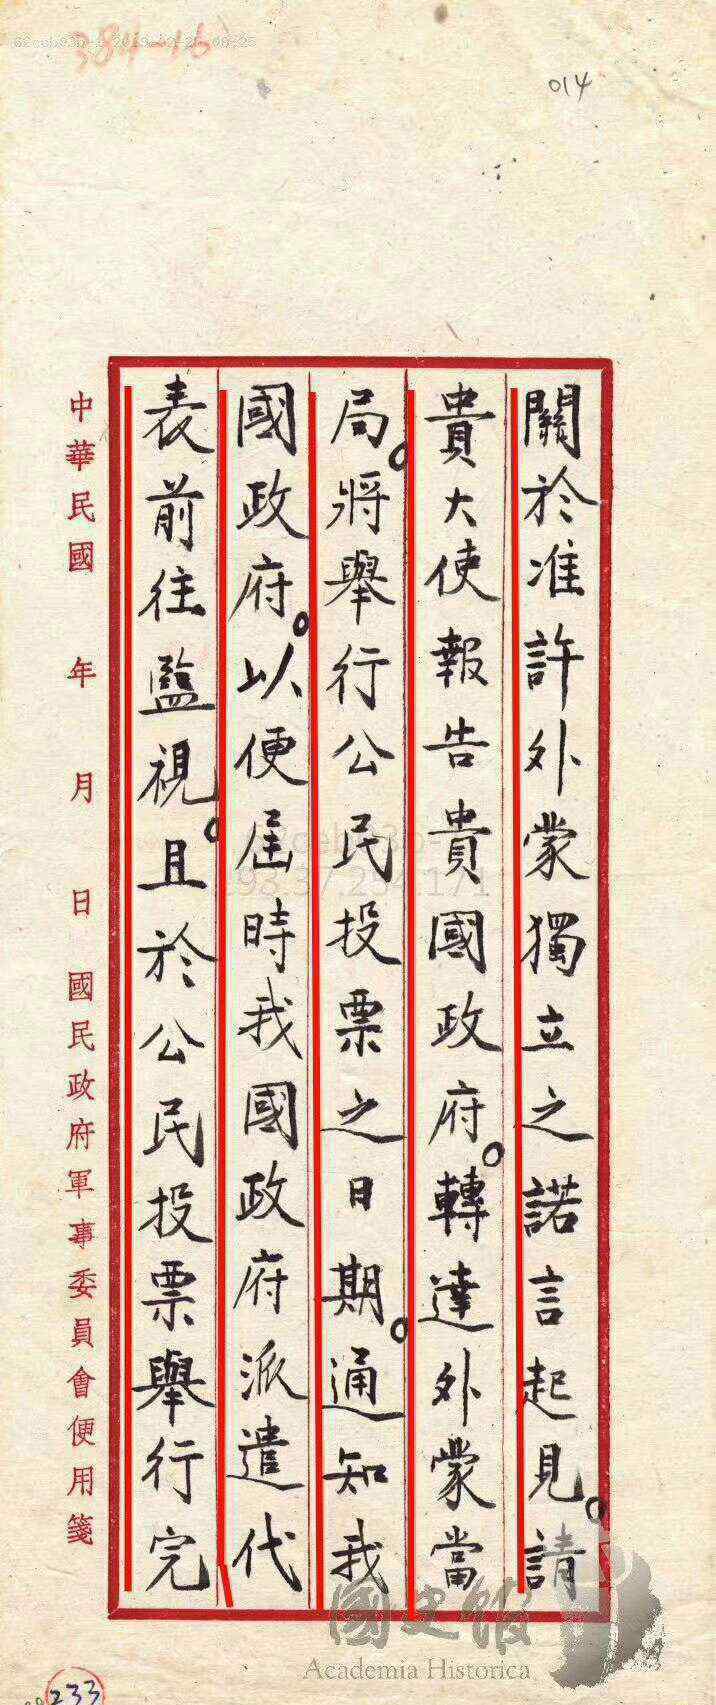 384-16
014
關於准許外蒙獨立之諾言起見。請
貴大使報告貴國政府。轉達外蒙當
局。將舉行公民投票之日期。通知我
國政府。以便屆時我國政府派遣代
表前往監視。且於公民投票舉行完
中華民國　年　月　日　國民政府軍事委員會便用箋
國史館
Academia Historica
233